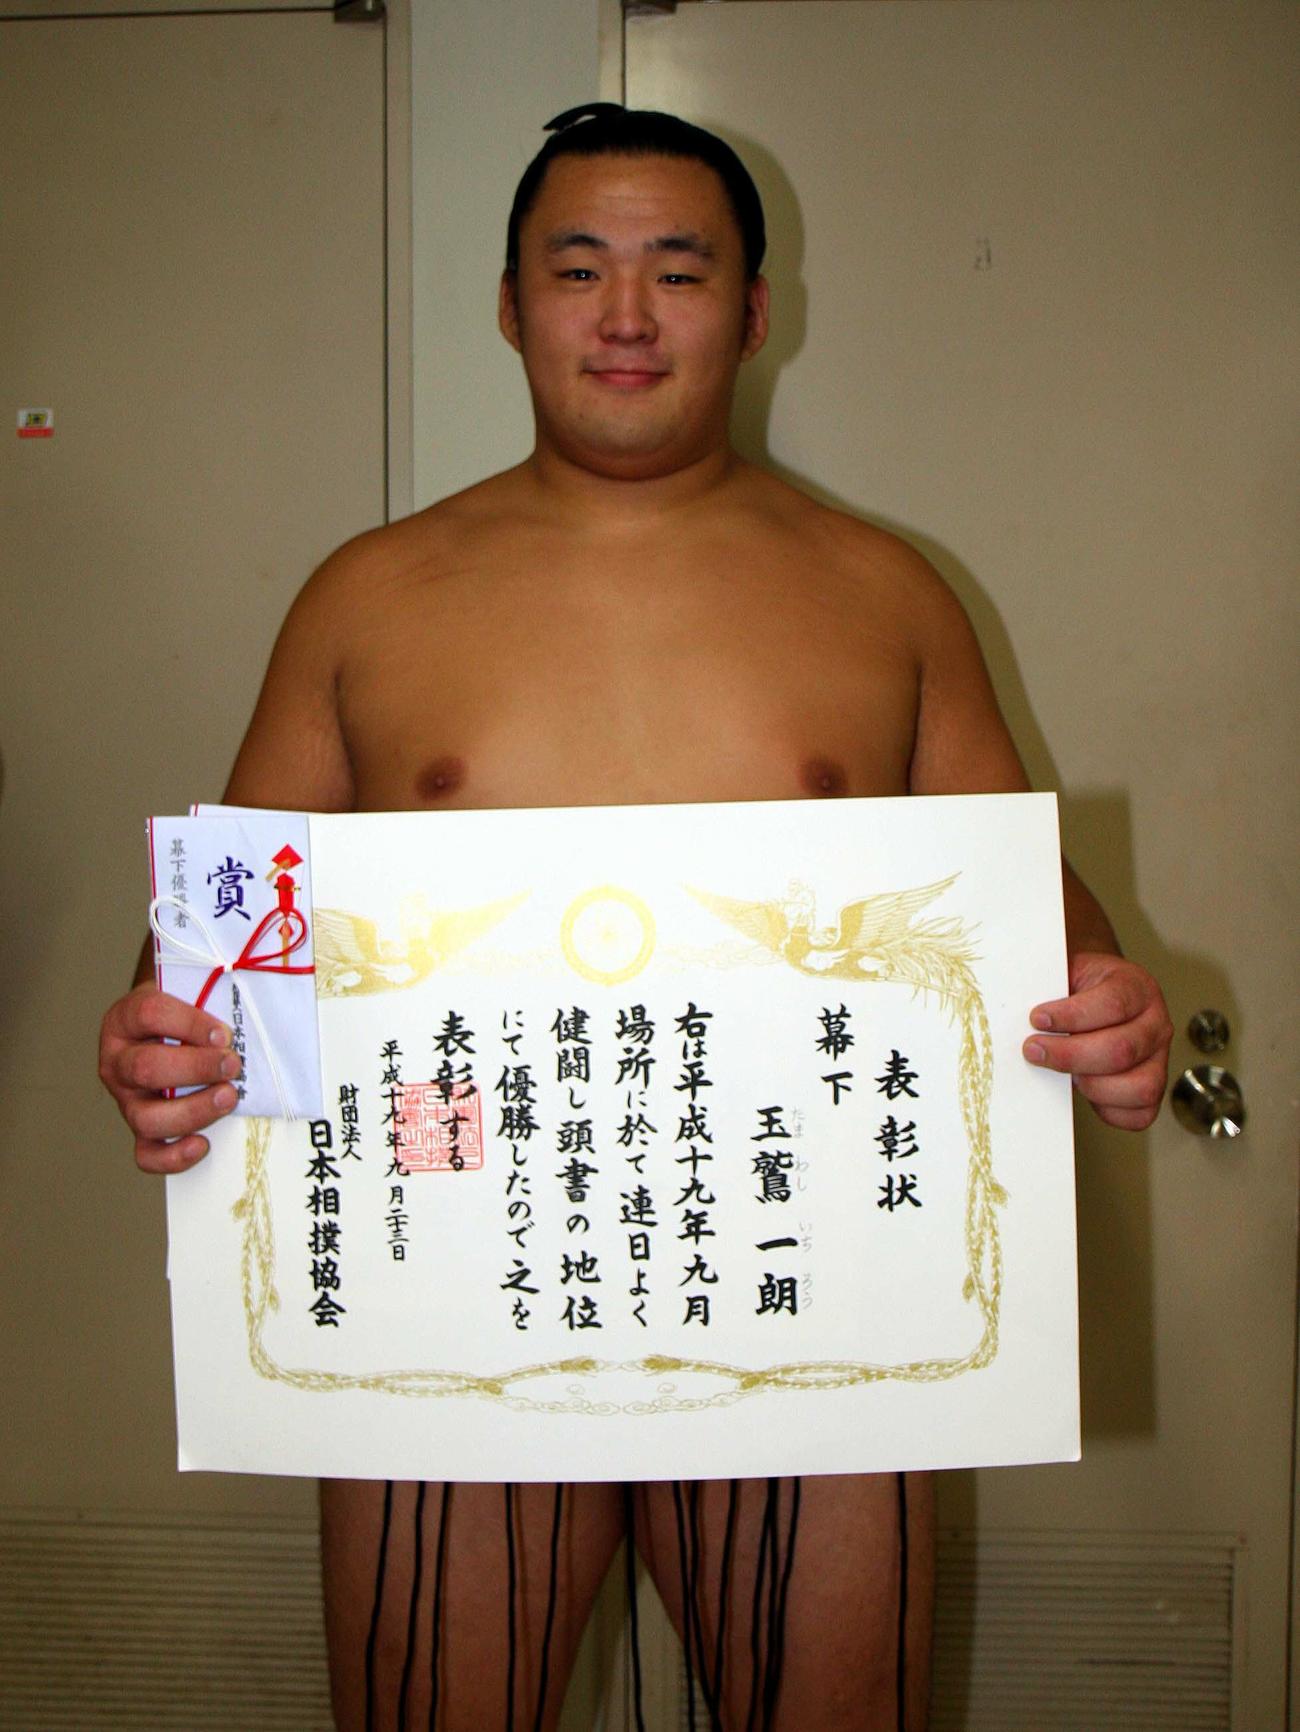 表彰状
幕下
玉鷲 一朗
たま わし いち ろう
右は平成十九年九月
場所に於て連日よく
健闘し頭書の地位
にて優勝したので之を
表彰する
平成十九年九月二十三日
財団法人
日本相撲協会
賞
幕下優勝者
日本相撲協会